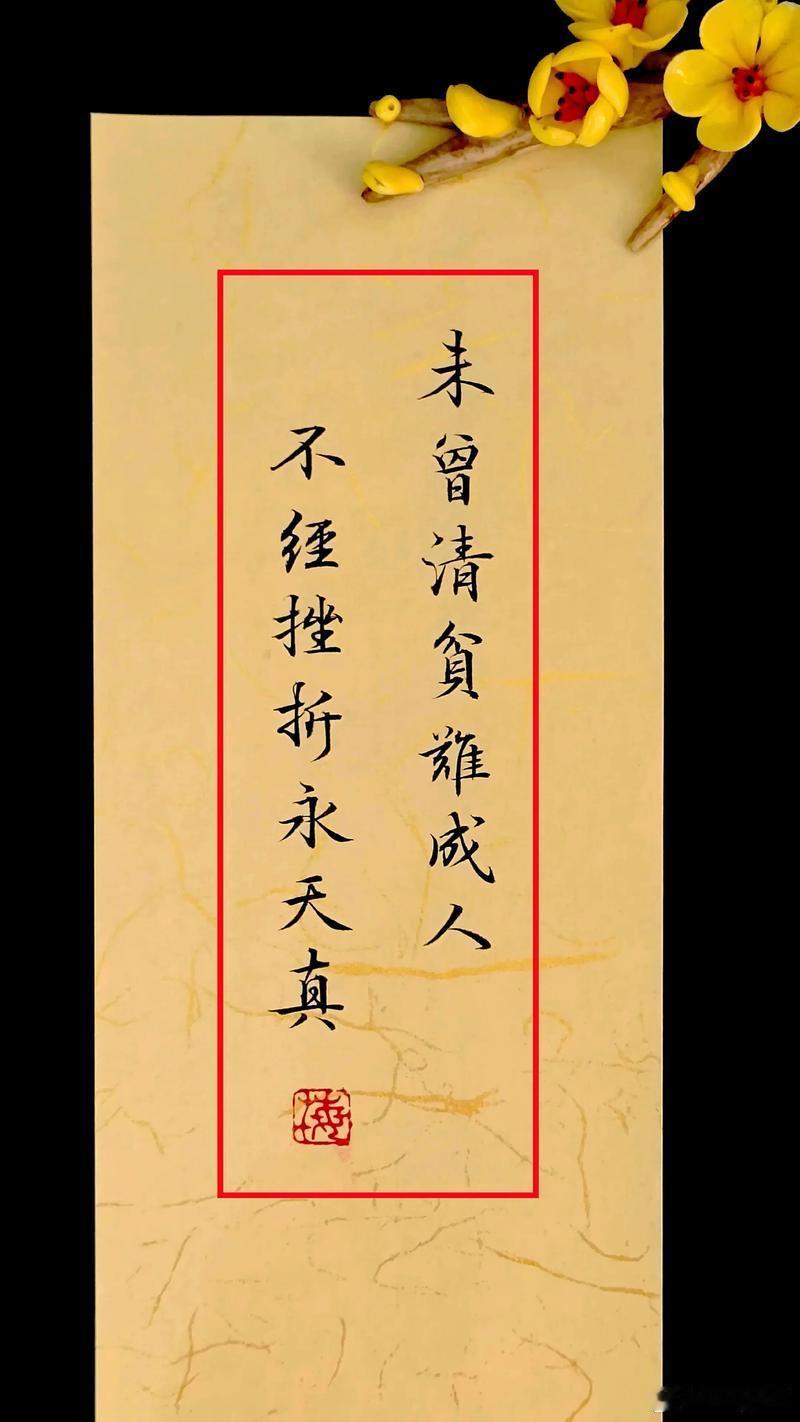 未曾清貧難成人
不經挫折永天真